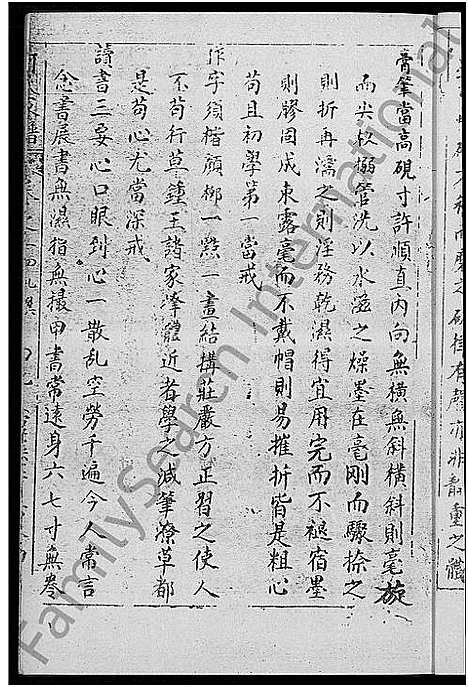 膏筆當高硯寸許順直內向無橫無斜橫斜則毫旋
而尖杈搦管洗以水滋之燥墨在毫剛而驟捺之
則折再濡之則浮務乾濕得宜用完而不褪宿墨
則膠固成束露毫而不戴帽則易摧折皆是粗心
苟且初學第一當戒
作字須楷顏柳一點一畫結構莊嚴方正習之使人
不苟行草鍾王諸家筆體近者學之減筆潦草都
是苟心尤當深戒
讀書三要心口眼到心一散乱空勞千遍今人常言
念書展書無濕指無撮甲書常遠身六七寸無捲
FamilySearch International